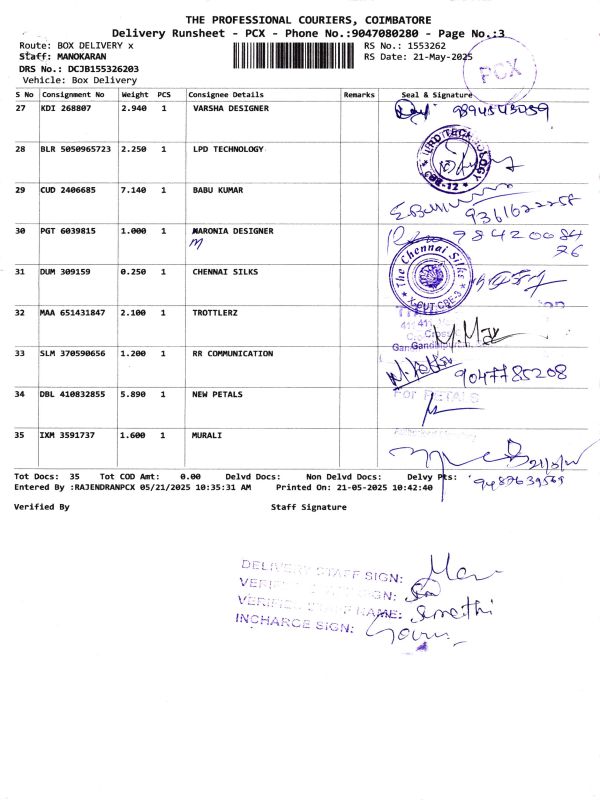 THE PROFESSIONAL COURIERS, COIMBATORE
Delivery Runsheet - PCX - Phone No.:9047080280 - Page No.:3
Route: BOX DELIVERY x
RS No.: 1553262
Staff: MANOKARAN
RS Date: 21-May-2025
DRS No.: DCJB155326203
Vehicle: Box Delivery
PCX
S No Consignment No Weight PCS Consignee Details Remarks Seal & Signature
27 KDI 268807 2.940 1 VARSHA DESIGNER
28 BLR 5050965723 2.250 1 LPD TECHNOLOGY
LPD TECHNOLOGY
29 CUD 2406685 7.140 1 BABU KUMAR
9361622258
30 PGT 6039815 1.000 1 MARONIA DESIGNER
M
98420084
76
31 DUM 309159 0.250 1 CHENNAI SILKS
The Chennai Silks
X-CUT CBE-3
32 MAA 651431847 2.100 1 TROTTLERZ
33 SLM 370590656 1.200 1 RR COMMUNICATION
9047785208
34 DBL 410832855 5.890 1 NEW PETALS
For PETALS
35 IXM 3591737 1.600 1 MURALI
Tot Docs: 35 Tot COD Amt: 0.00 Delvd Docs: Non Delvd Docs: Delvy Pts:
Entered By :RAJENDRANPCX 05/21/2025 10:35:31 AM Printed On: 21-05-2025 10:42:40
Verified By Staff Signature
DELIVERY STAFF SIGN:
VERIFIED STAFF SIGN:
VERIFIED STAFF NAME:
INCHARGE SIGN: